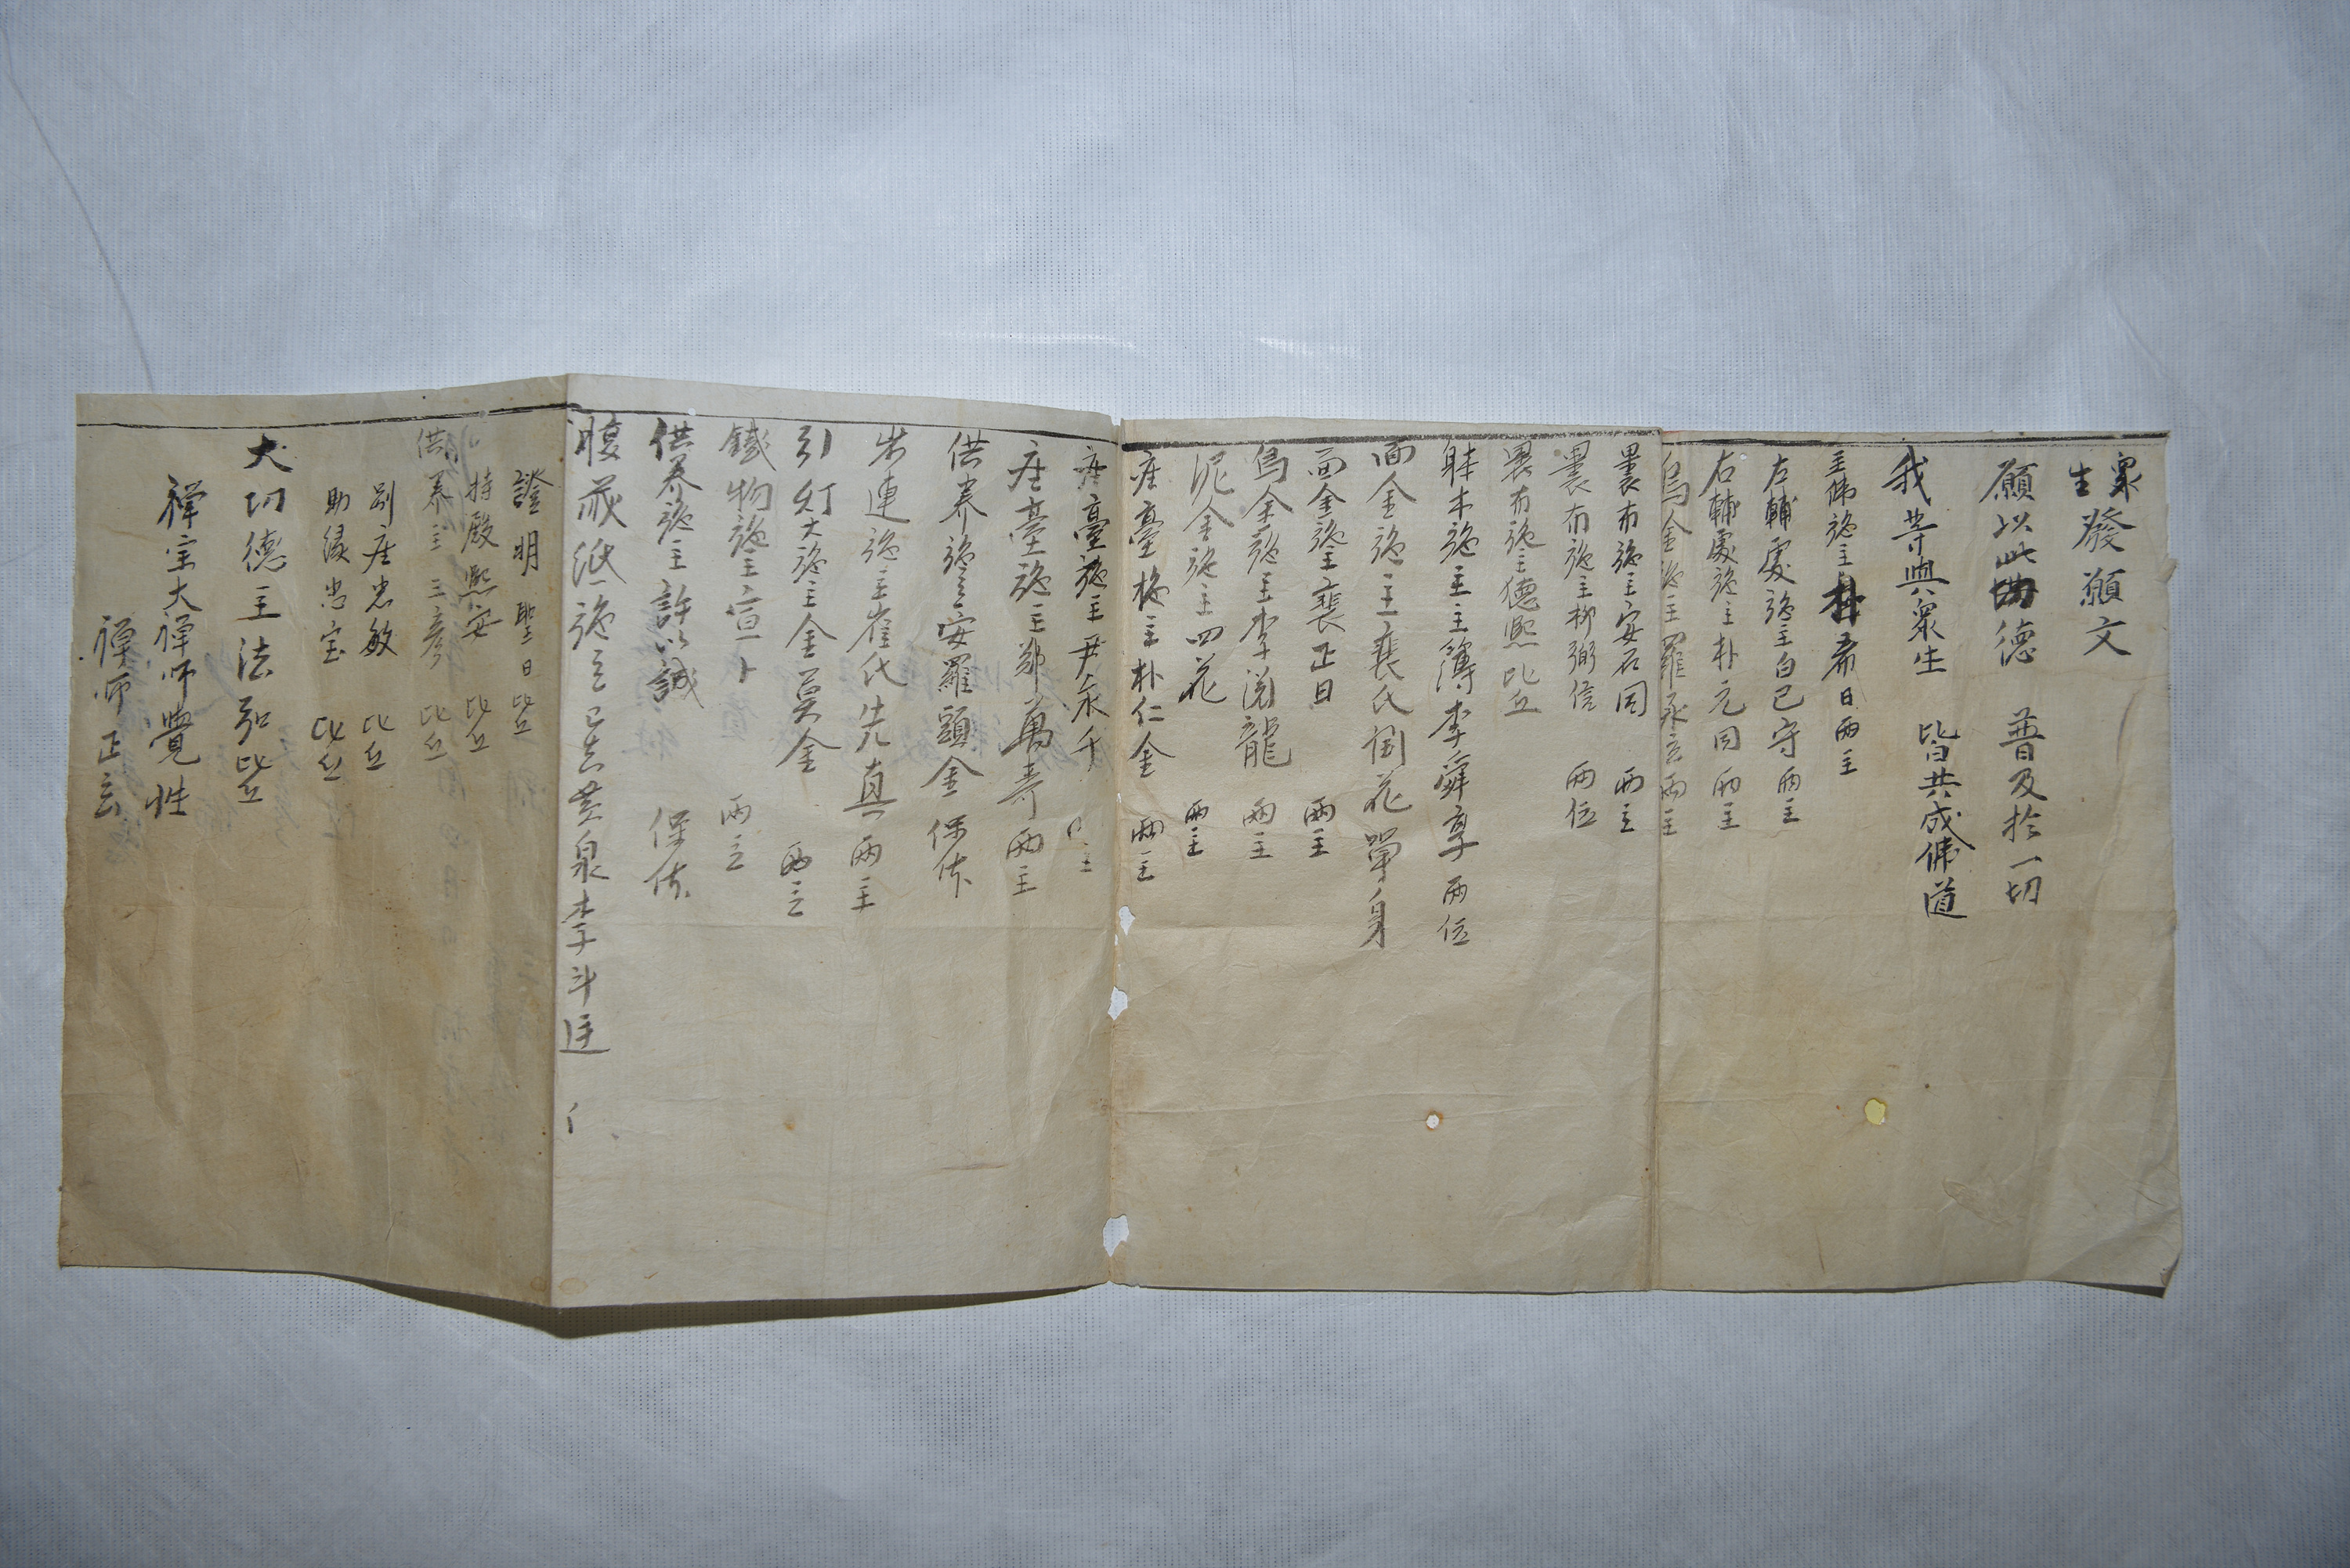 衆生發願文
願以此功德 普及於一切
我等與衆生 皆共成佛道
主佛施主朴希日兩主
左輔處施主白已守兩主
右輔處施主朴元同兩主
烏金施主羅永立兩主
裏布施主安石同 兩主
裏布施主柳弼信 兩位
裏布施主德熙比丘
躰木施主主簿李舜享兩位
面金施主裵氏開花單身
面金施主裵正日 兩主
烏金施主李淡龍 兩主
泥金施主四花 兩主
座臺施主朴仁金 兩主
座臺施主尹永千 主
座臺施主鄭萬壽兩主
供养施主安羅頭金保体
朱連施主崔氏先真兩主
引灯大施主金莫金 兩主
鐵物施主宣卜 兩主
供养施主許以誠 保体
腹藏紙施主 黃泉李斗 
證明 聖日比丘
持殿熙安 比丘
供养主 三彦 比丘
別座忠敏 比丘
助缘忠宝 比丘
大功德主法弘比丘
禅宗大禅师覺性
禅师 正玄